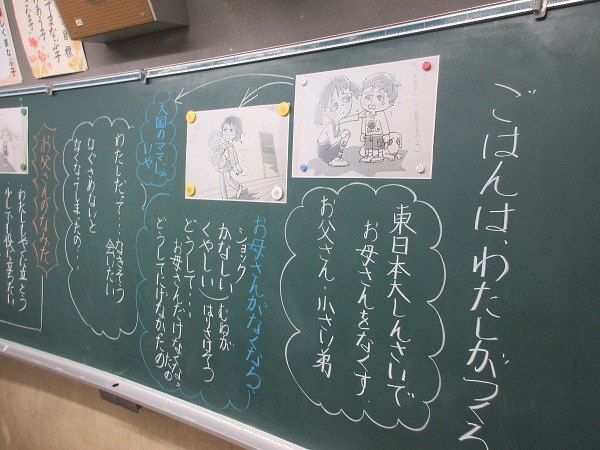 ごはんは、わたしがつくる
東日本大しんさいで
お母さんをなくす
お父さん 小さい弟
お母さんがなくなる
ショック
かなしい
くやしい
むねが
はりさけそう
どうして・・・
お母さんだけなくなったの
どうしてたすけなかったの
天国のママじゃ
いや
わたしだって・・・なきそう
会いたい
なぐさめないと
なくなってしまったの・・・
お父さんのなみだ
わたししゃくに立とう
少しでも役に立ちたい